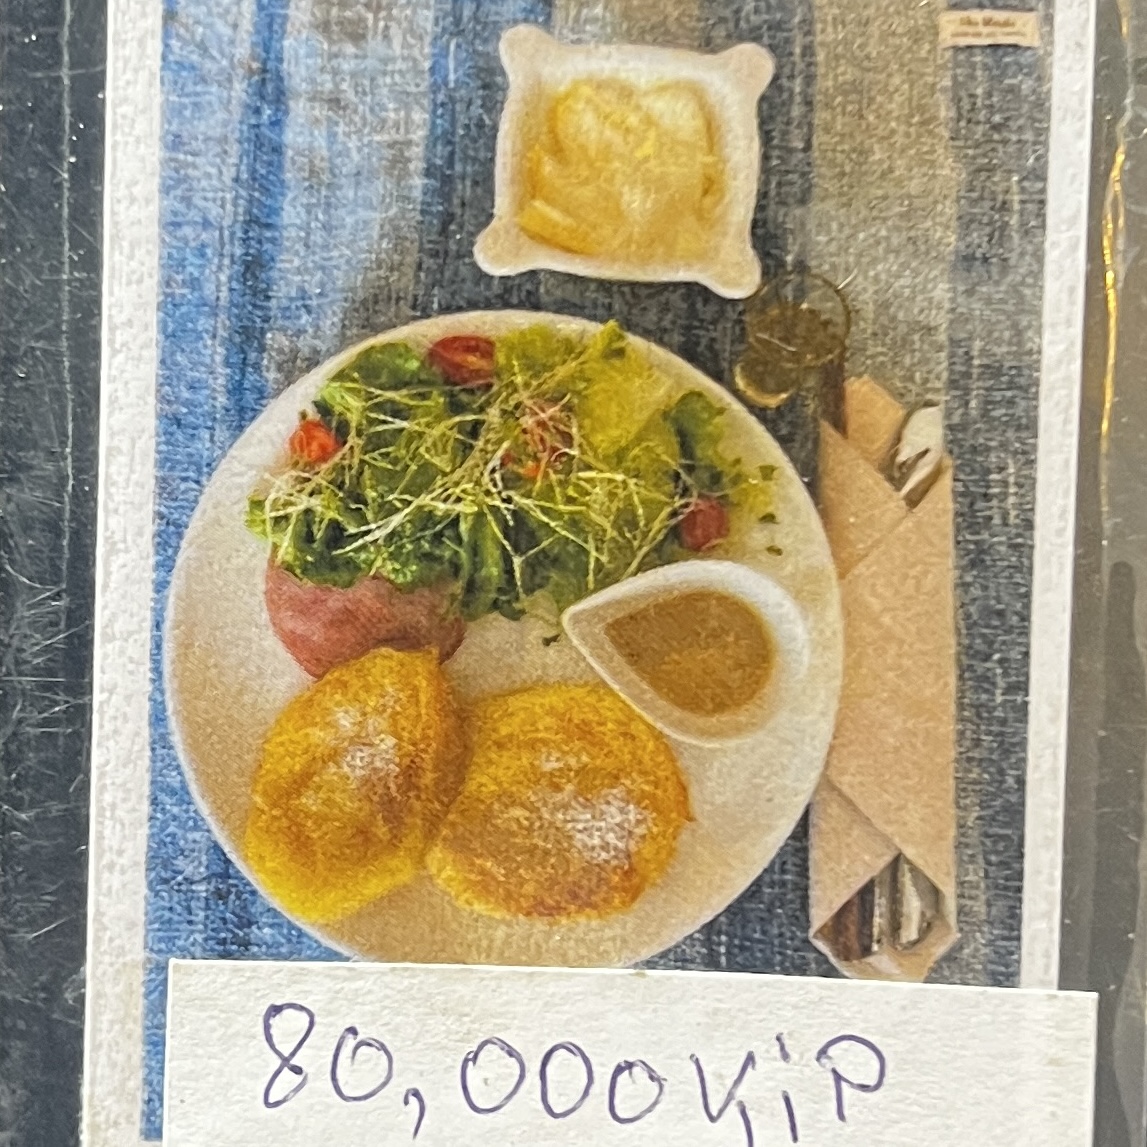 80,000 KiP